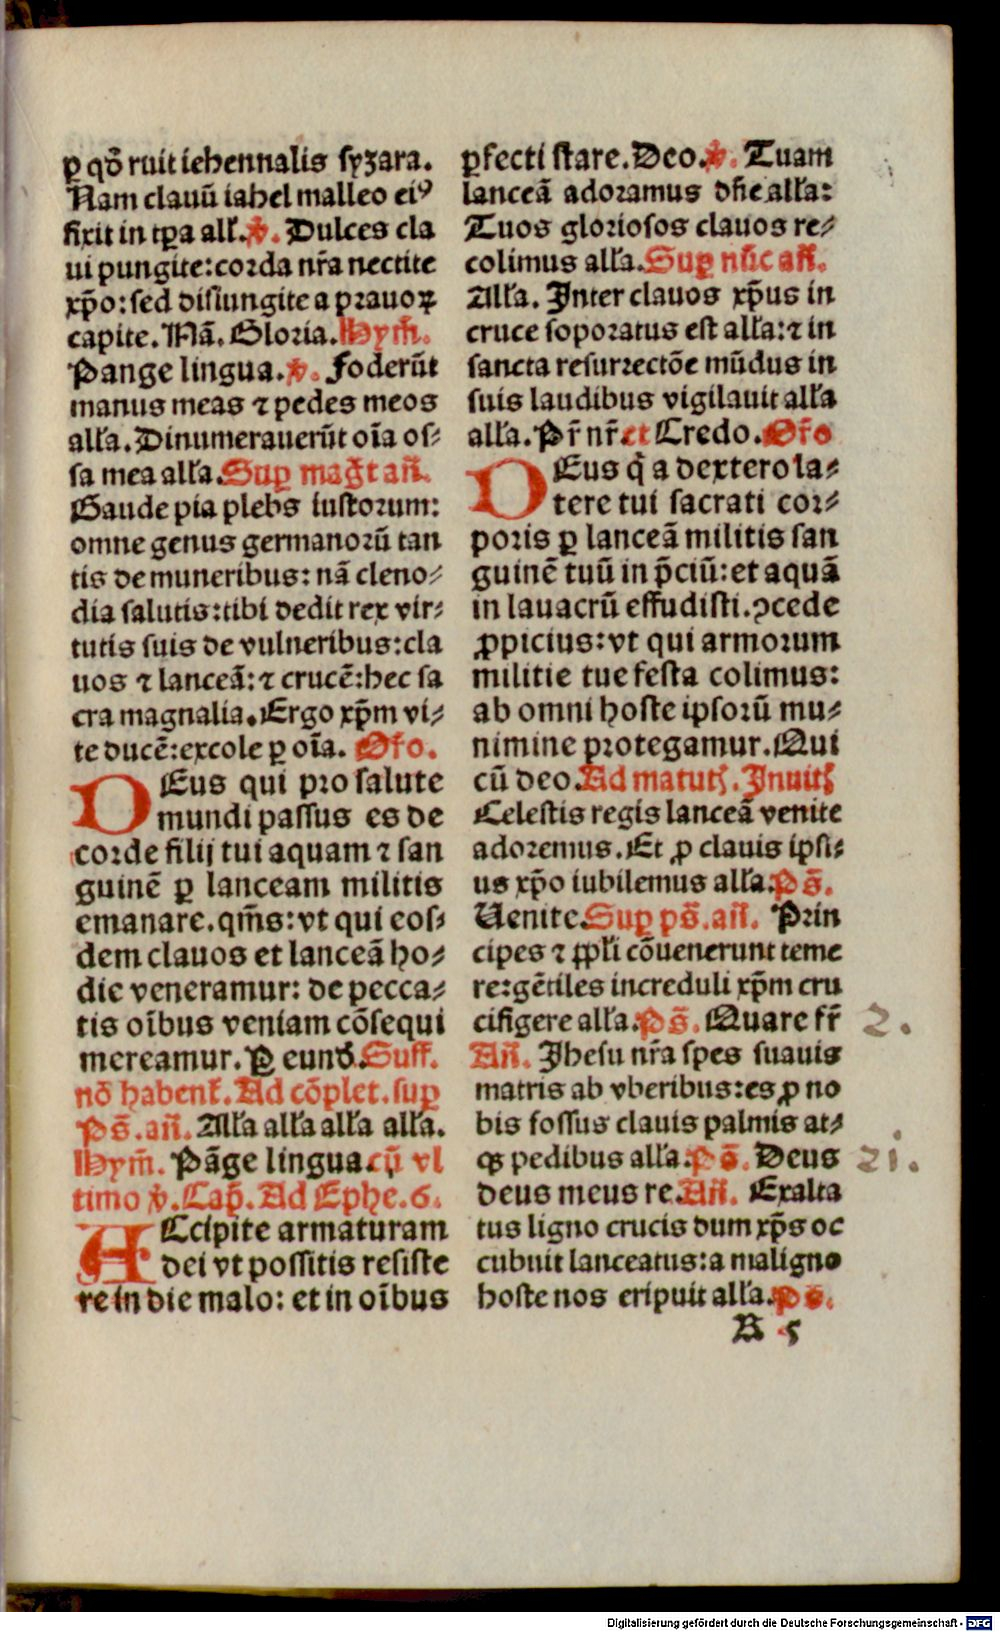 ꝑ qō ruit iehennalis syʒara.
Nam clauū iahel malleo eiꝰ
fixit in tꝑa all̄. ℣. Dulces cla
ui pungite: corda nr̄a nectite
xp̄o: sed disiungite a prauoꝝ
capite. Mā. Gloria. Hym̄.
Pange lingua. ℣. Foderūt
manus meas ⁊ pedes meos
alla. Dinumerauerūt oīa os⸗
sa mea alla. Suꝑ mag̃t an̄.
Gaude pia plebs iustorum:
omne genus germanorū tan
tis de muneribus: nā cleno⸗
dia salutis: tibi dedit rex vir⸗
tutis suis de vulneribus: cla
uos ⁊ lanceā: ⁊ crucē: hec sa
cra magnalia. Ergo xp̄m vi⸗
te ducē: excole ꝑ oīa. Or̄o.
DEus qui pro salute
mundi passus es de
corde filij tui aquam ⁊ san
guinē ꝑ lanceam militis
emanare. qm̄s: vt qui eos⸗
dem clauos et lanceā ho⸗
die veneramur: de pecca⸗
tis oībus veniam cōsequi
mereamur. Ꝑ eund. Suff.
nō habent̄. Ad cōplet. suꝑ
Ps̄. an̄. Alla alla alla alla.
Hym̄. Pāge lingua. cū vl
timo ℣. Cap̄. Ad Ephe. 6.
ACcipite armaturam
dei vt possitis resiste
re in die malo: et in oībus
ꝑfecti stare. Deo. ℣. Tuam
lanceā adoramus dn̄e alla:
Tuos gloriosos clauos re⸗
colimus alla. Suꝑ nūc an̄.
Alla. Inter clauos xp̄us in
cruce soporatus est alla: ⁊ in
sancta resurrectōe mūdus in
suis laudibus vigilauit alla
alla. Pr̄ nr̄. et Credo. Or̄o
DEus q̄ a dextero la⸗
tere tui sacrati cor⸗
poris ꝑ lanceā militis san
guinē tuū in p̄ciū: et aquā
in lauacrū effudisti. ꝯcede
ꝓpicius: vt qui armorum
militie tue festa colimus:
ab omni hoste ipsorū mu⸗
nimine protegamur. Qui
cū deo. Ad matut̄. Inuit̄
Celestis regis lanceā venite
adoremus. Et ꝓ clauis ipsi⸗
us xp̄o iubilemus alla. Ps̄.
Uenite. Suꝑ ps̄. an̄. Prin
cipes ⁊ ppl̄i cōuenerunt teme
re: gētiles increduli xp̄m cru
cifigere alla. Ps̄. Quare fr̄ 2.
An̄. Jhesu nr̄a spes suauis
matris ab vberibus: es ꝓ no
bis fossus clauis palmis at⸗
qꝫ pedibus alla. Ps̄. Deus 21.
deus meus re. An̄. Exalta
tus ligno crucis dum xp̄s oc
cubuit lanceatus: a maligno
hoste nos eripuit alla. Ps̄.
B 5
Digitalisierung gefördert durch die Deutsche Forschungsgemeinschaft - DFG